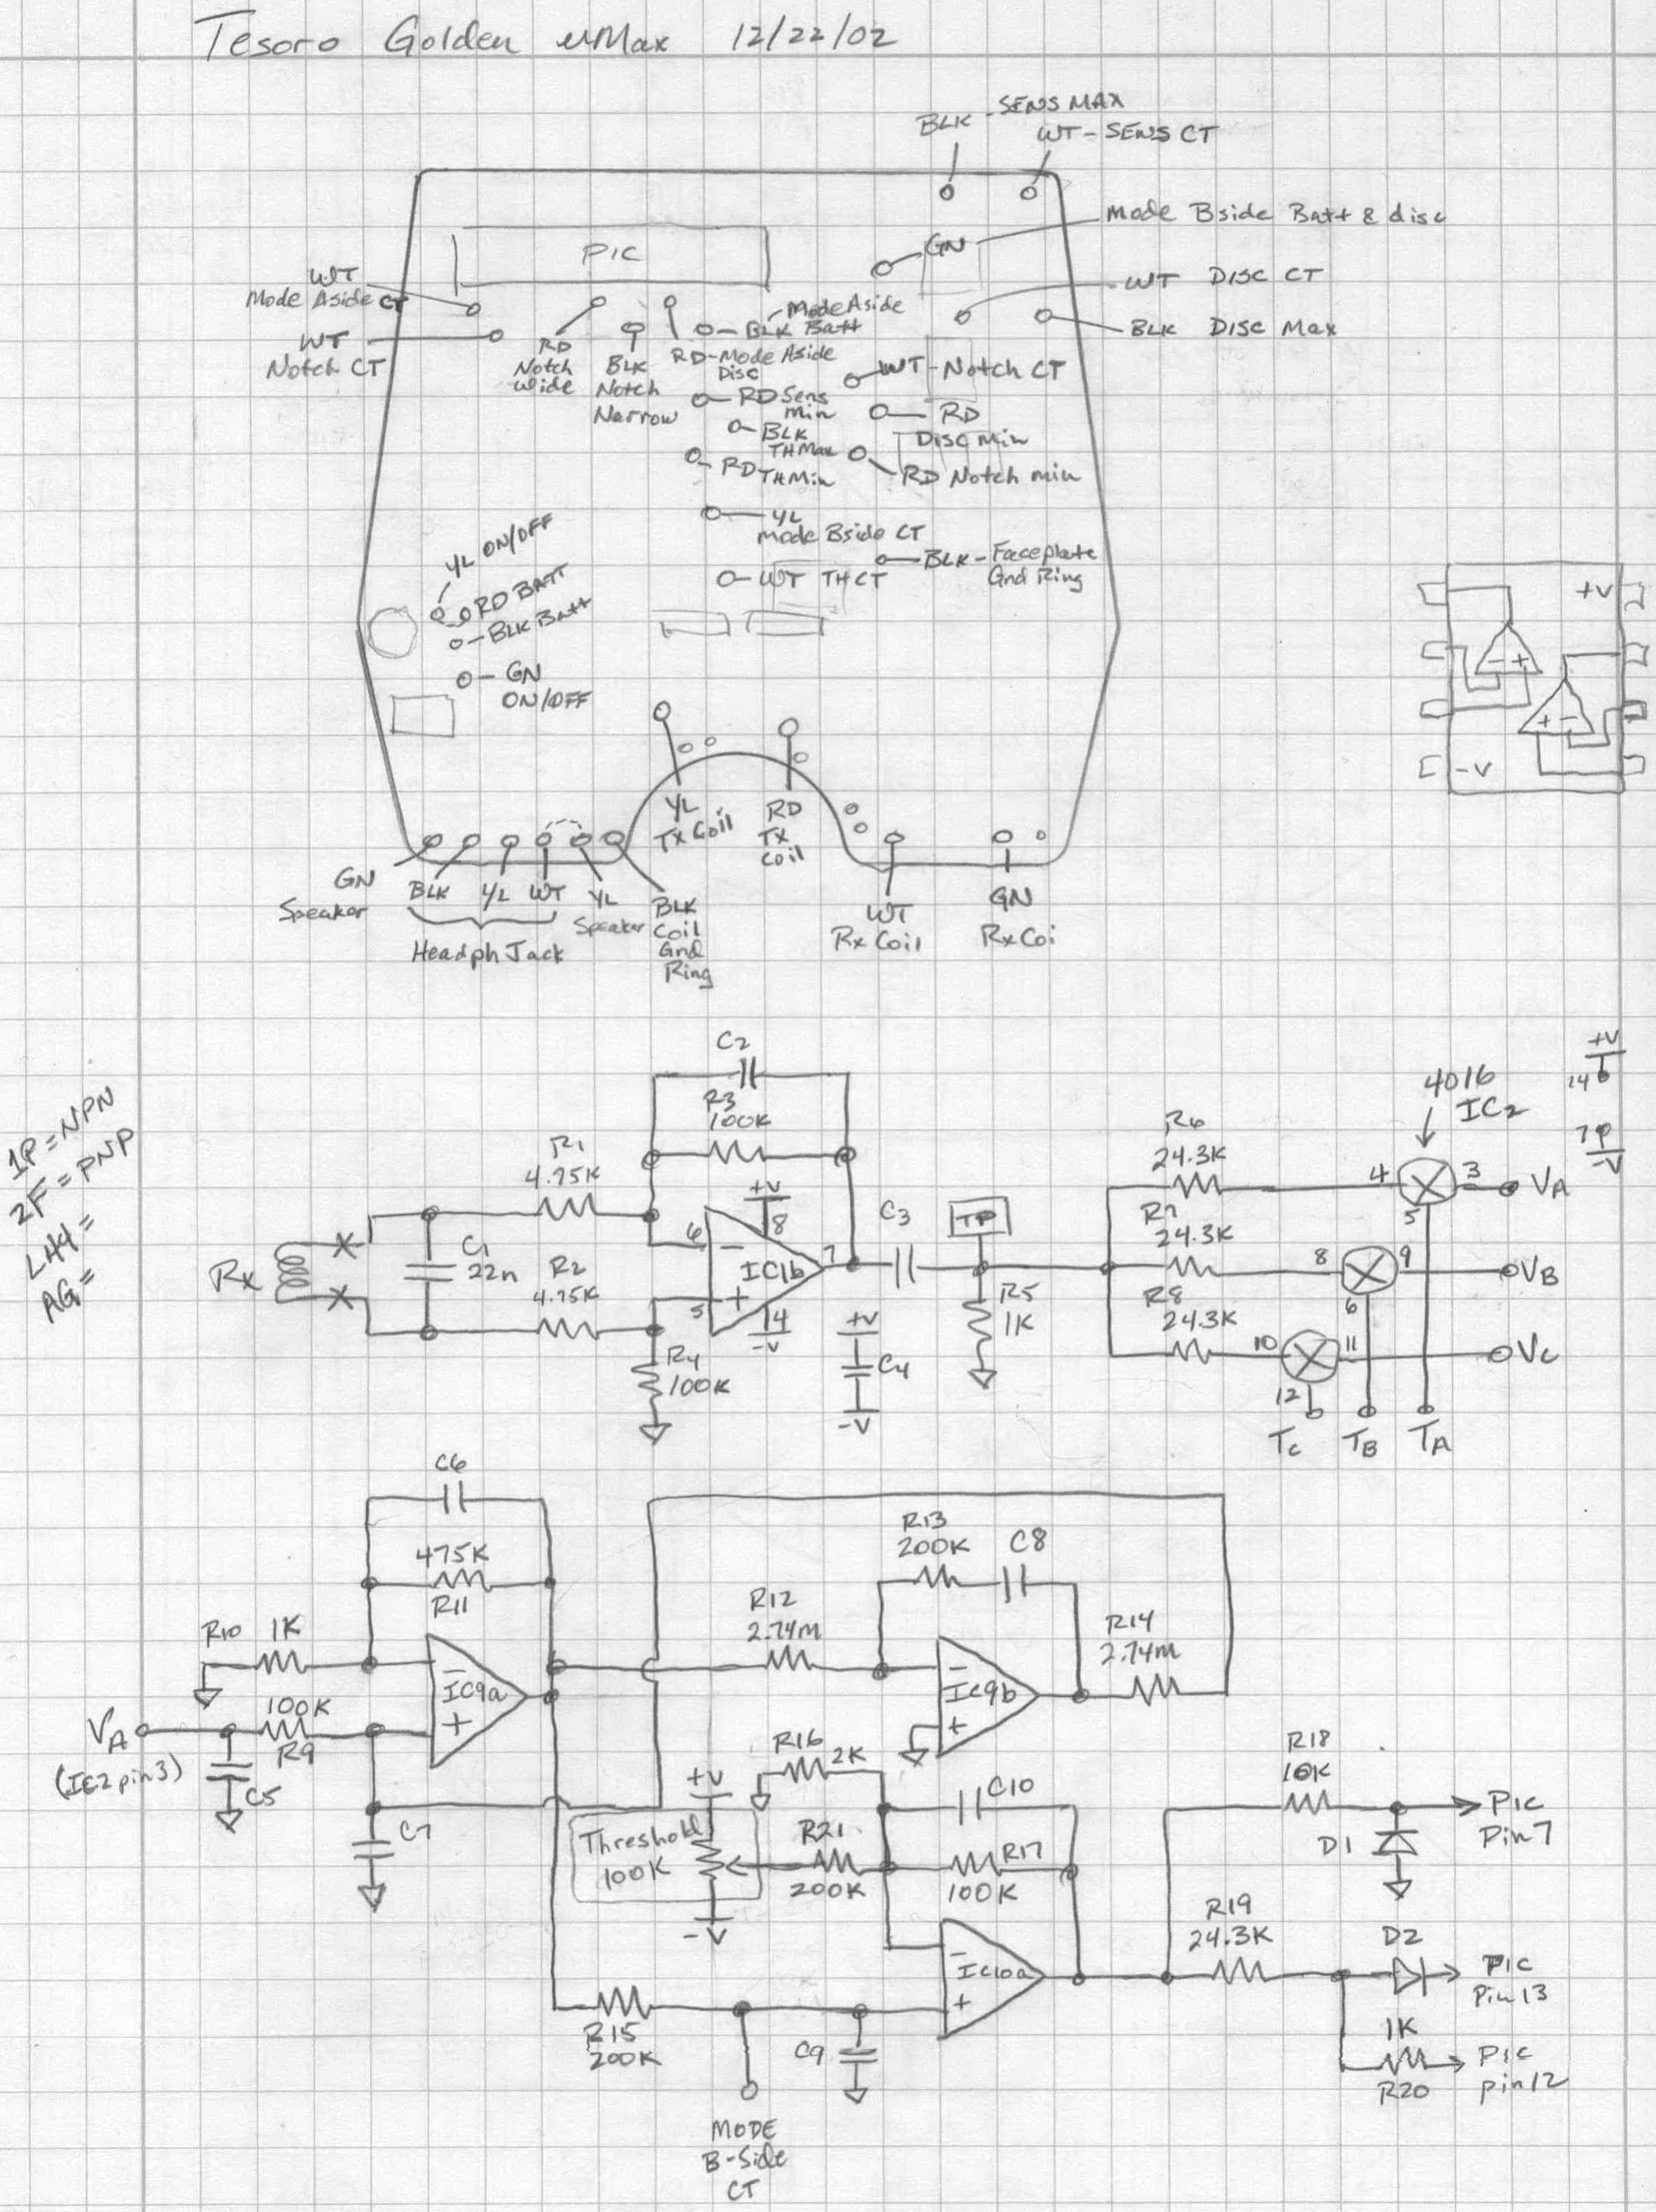 Tesoro Golden uMax 12/22/02
BLK - SENS MAX
WT - SENS CT
Mode Bside Batt & disc
GN
PIC
WT
Mode Aside CT
WT DISC CT
Mode Aside
BLK Batt
BLK DISC Max
WT
Notch CT
RD
Notch
Wide
BLK
Notch
Narrow
RD-Mode Aside
Disc
WT-Notch CT
RD Sens
Min
RD
Disc Min
BLK
TH Max
RD TH Min
RD Notch min
YL
Mode Bside CT
BLK - Faceplate
Gnd Ring
WT THCT
YL ON/OFF
RD BATT
BLK Batt
GN
ON/OFF
+V
- +
+ -
-V
YL
TX Coil
RD
TX
Coil
GN
Speaker
BLK YL WT
Headph Jack
YL
Speaker
BLK
Coil
Gnd
Ring
WT
Rx Coil
GN
Rx Coi
1P=NPN
2F=PNP
LH4=
AG=
C2
R3
100K
R1
4.75K
Rx
C1
22n
R2
4.75K
+V
8
6
-
IC1b
7
5
+
4
-V
R4
100K
C3
TP
R5
1K
+V
C4
-V
R6
24.3K
R7
24.3K
R8
24.3K
4016
IC2
+V
14
7
-V
4 3 VA
5
8 9 VB
6
10 11 VC
12
TC TB TA
C6
475K
R11
R10 1K
-
IC9a
+
100K
R9
VA
(IC2 pin3)
C5
C7
R13
200K C8
R12
2.74m
-
IC9b
+
R14
2.74m
R16
2K
+V
Threshold
100K
-V
R21
200K
C10
R17
100K
-
IC10a
+
R15
200K
C9
MODE
B-Side
CT
R18
10K
D1
PIC
Pin 7
R19
24.3K
D2
PIC
Pin 13
1K
R20
PIC
pin 12